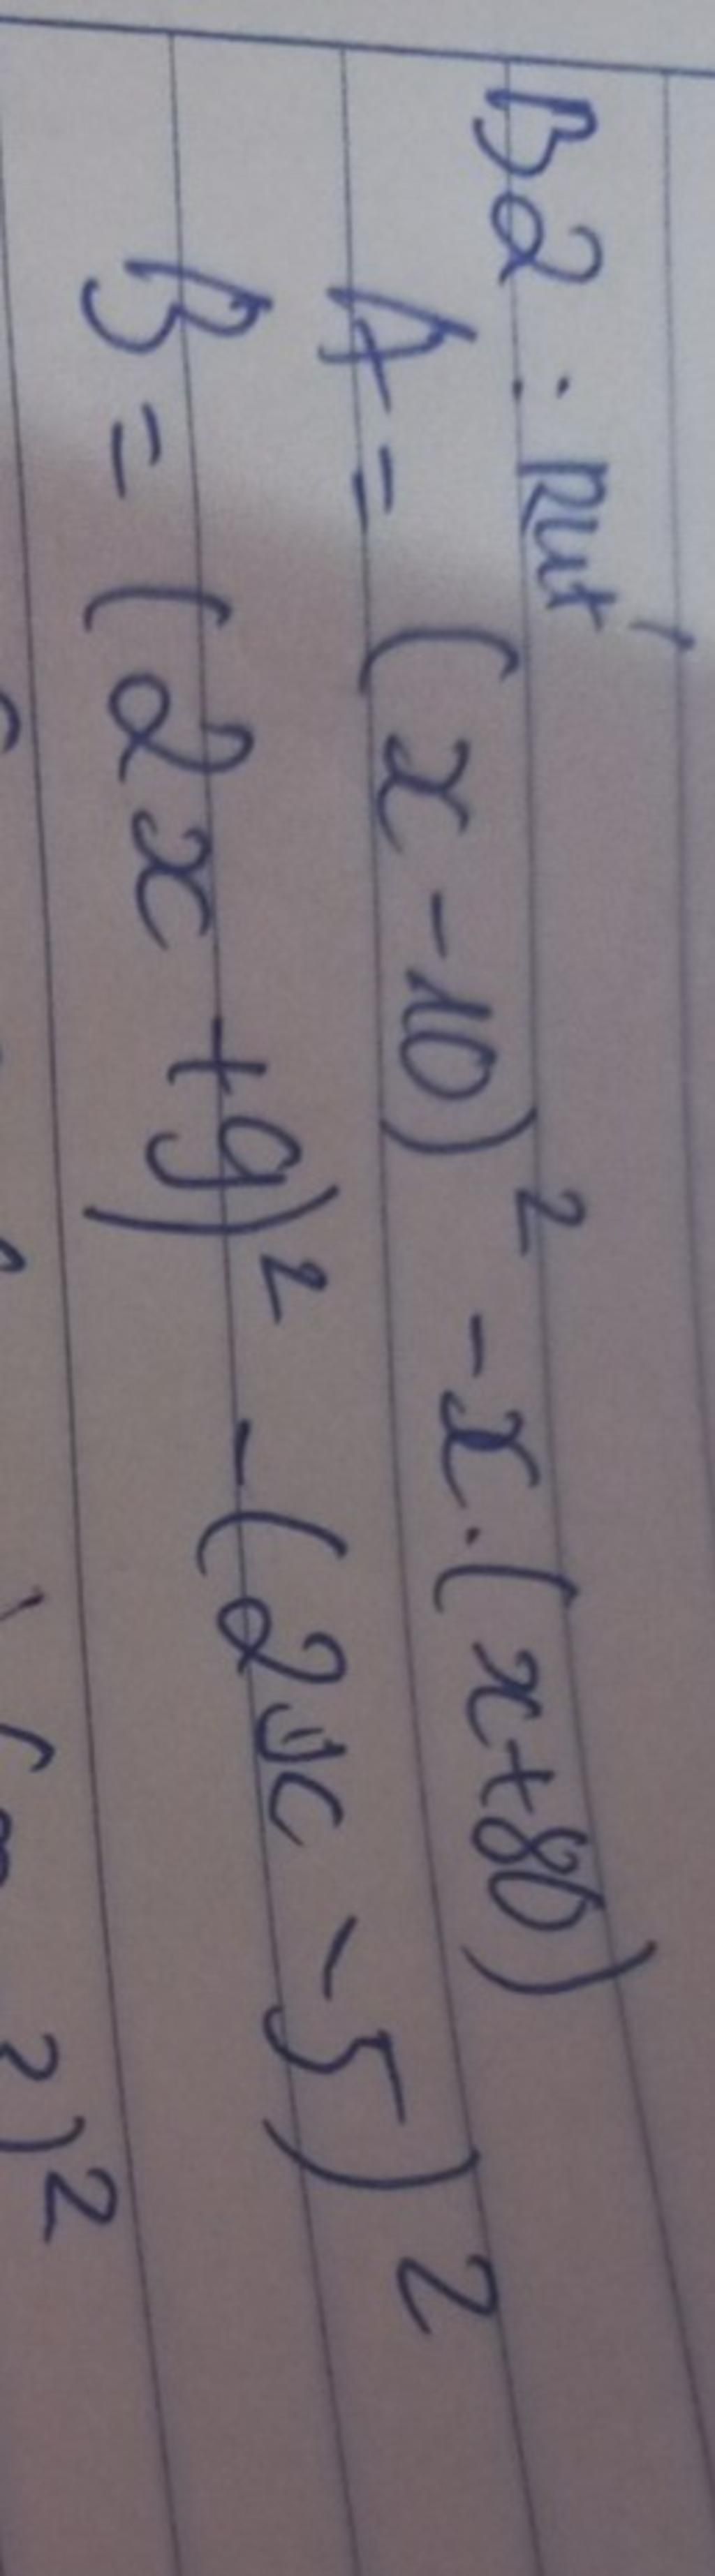 B2 : Rút
A = (x - 10)² - x.(x+80)
B = (2x + 9)² - (2x - 5)²
2)²